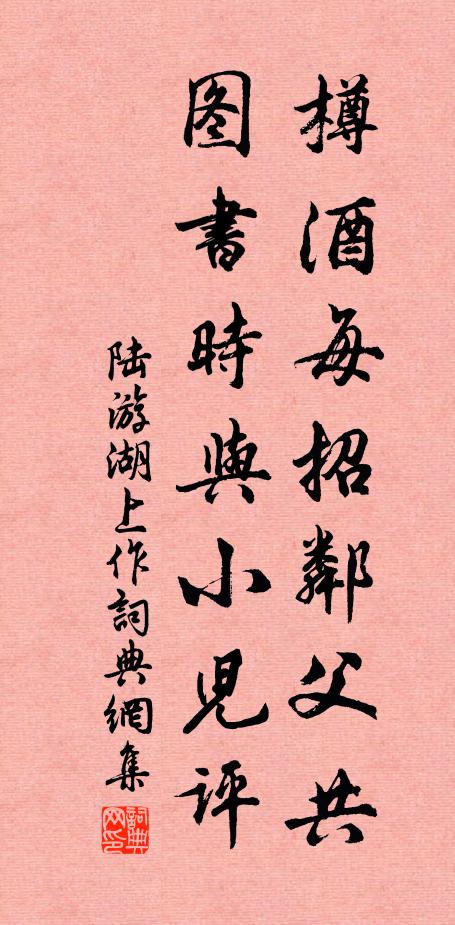 樽酒每招鄰父共
图書時與小児評
陆游湖上作詞典網集
詞典网印